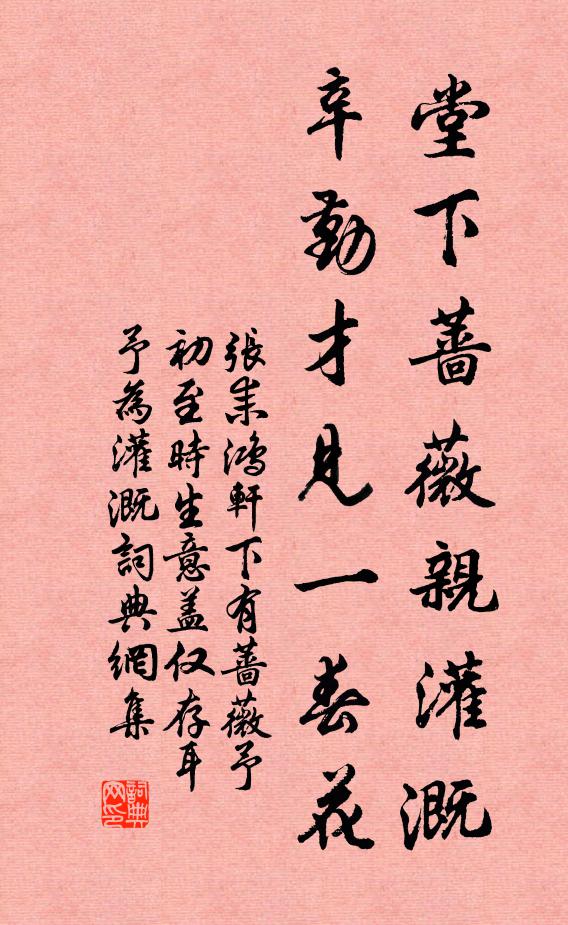 堂下薔薇親灌溉
辛勤才見一春花
張耒鴻軒下有薔薇予
初至時生意盖仅存耳
予為灌溉詞典網集
詞典网印